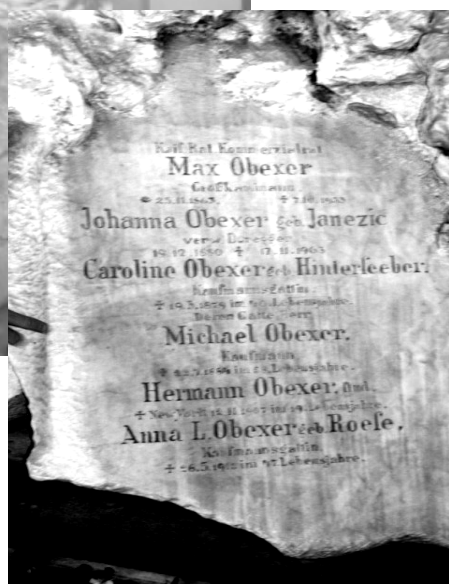 Kais. Rat Kommerzialrat
Max Obexer
Großkaufmann
25.11.1863. ✝ 7.10.1935
Johanna Obexer geb. Janezic
verw.
19.12.1880 ✝ 17.11.1963
Caroline Obexer geb. Hinterseeber.
Kaufmannsgattin
✝ 19.3.1879 im Lebensjahre.
Deren Gatte Herr
Michael Obexer.
Kaufmann
✝ im Lebensjahre.
Hermann Obexer,
✝ New York 12.11.1907 im 19. Lebensjahre.
Anna L. Obexer geb. Roese.
Kaufmannsgattin
✝ 26.5.1912 im Lebensjahre.